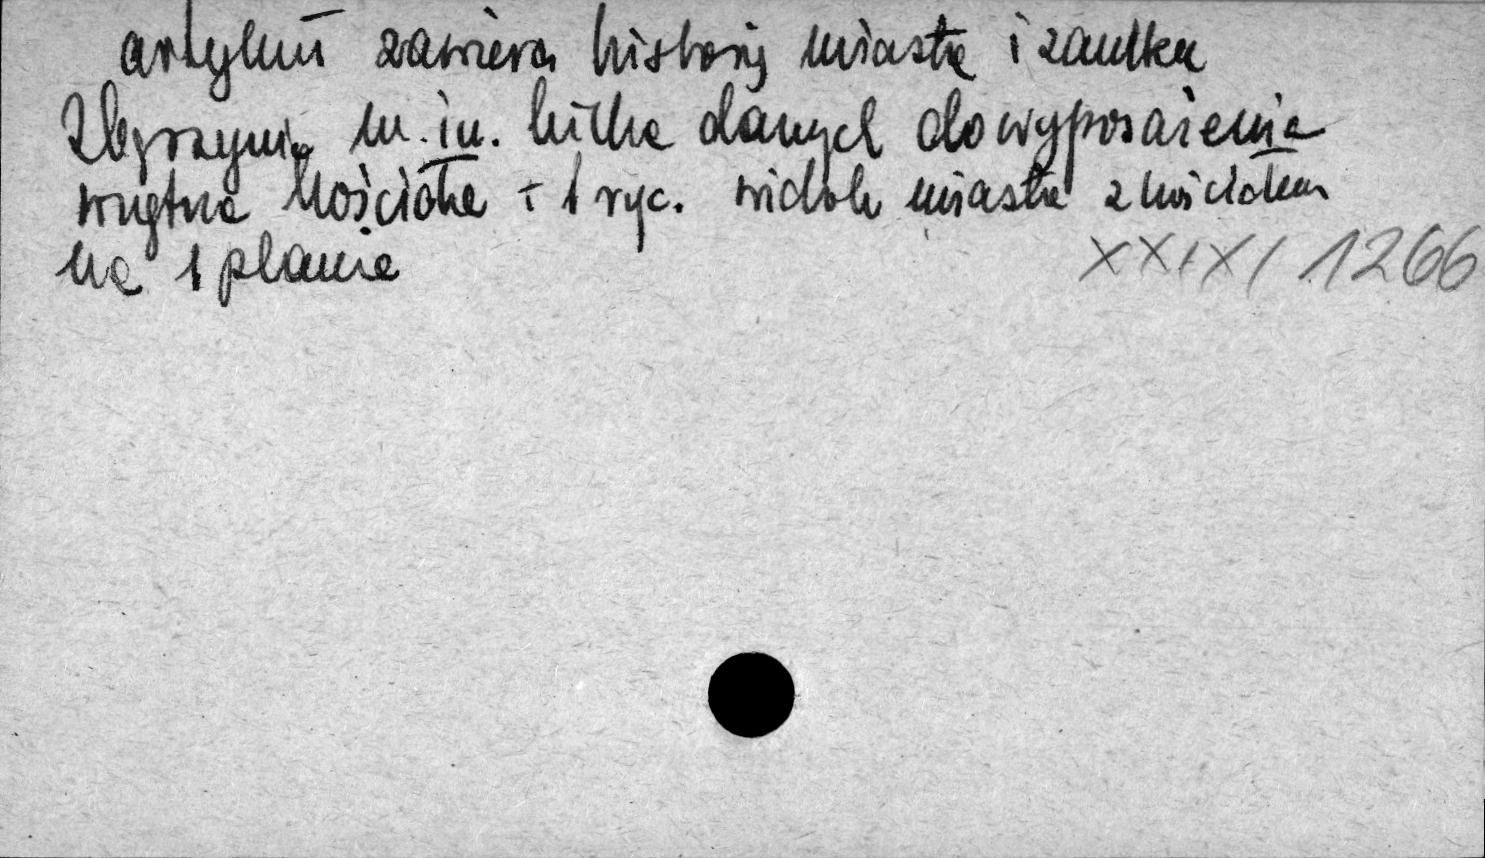 artykuł zawiera historię miasta i zamku
m.in. kilka danych do wyposażenia
wnętrza kościoła + 1 ryc. widok miasta z kościołem
na 1 planie
XXIX/1266